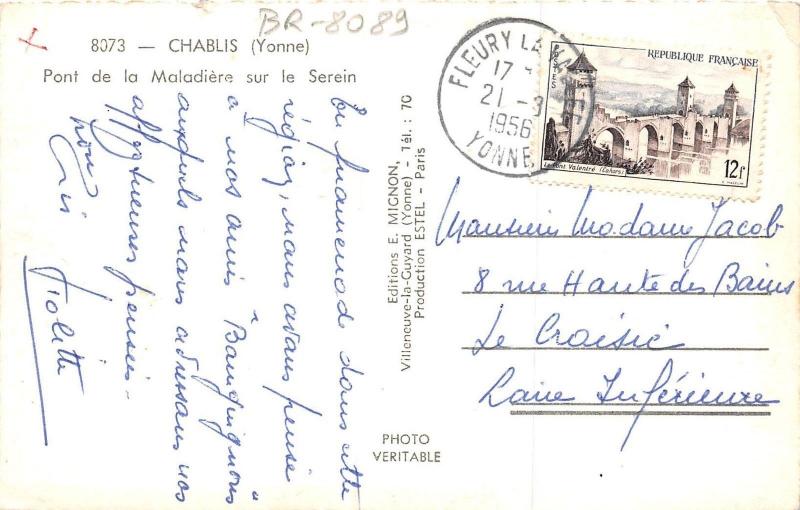 BR-8089
8073 — CHABLIS (Yonne)
Pont de la Maladière sur le Serein
En promenade dans cette
région, nous avons pensé
à nos amis "Bourguignons"
auxquels nous adressons nos
affectueuses pensées.
Violette
Editions E. MIGNON,
Villeneuve-la-Guyard (Yonne) - Tél. : 70
Production ESTEL - Paris
PHOTO
VERITABLE
FLEURY LA VALLEE
17 -
21 - 3
1956
YONNE
REPUBLIQUE FRANÇAISE
POSTES
Le Pont Valentré (Cahors)
12f
Monsieur Madame Jacob
8 rue Haute des Bains
Le Croisic
Loire Inférieure